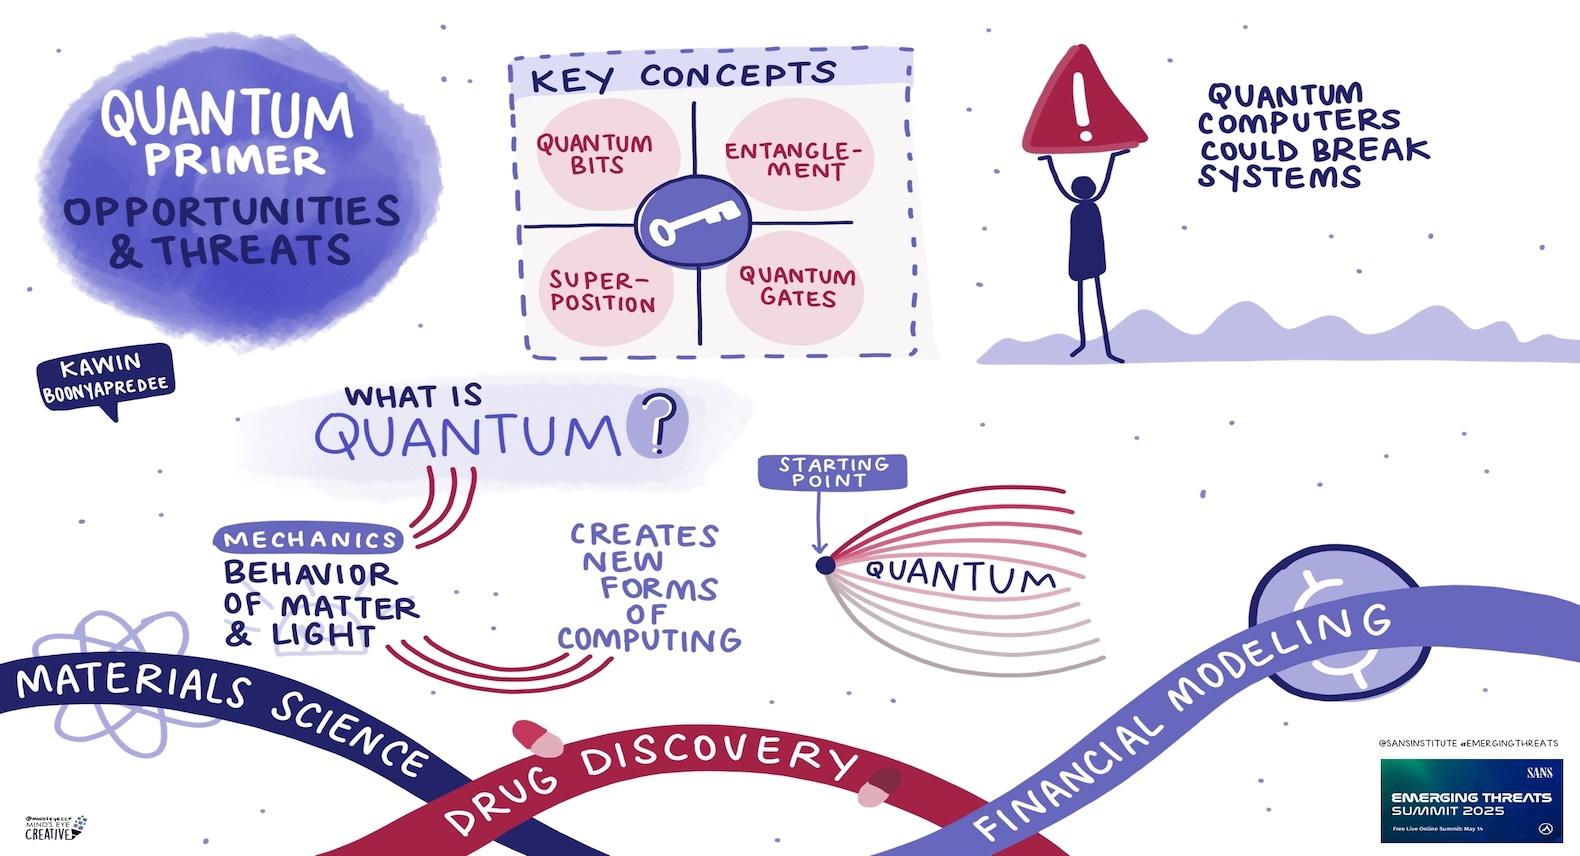 QUANTUM
PRIMER
OPPORTUNITIES
& THREATS
KAWIN
BOONYAPREDEE
KEY CONCEPTS
QUANTUM
BITS
ENTANGLE-
MENT
SUPER-
POSITION
QUANTUM
GATES
!
QUANTUM
COMPUTERS
COULD BREAK
SYSTEMS
WHAT IS
QUANTUM?
MECHANICS
BEHAVIOR
OF MATTER
& LIGHT
CREATES
NEW
FORMS
OF
COMPUTING
STARTING
POINT
QUANTUM
MATERIALS SCIENCE
DRUG DISCOVERY
FINANCIAL MODELING
@MINDSEYECCF
MIND'S EYE
CREATIVE
@SANSINSTITUTE #EMERGINGTHREATS
SANS
EMERGING THREATS
SUMMIT 2025
Free Live Online Summit: May 14